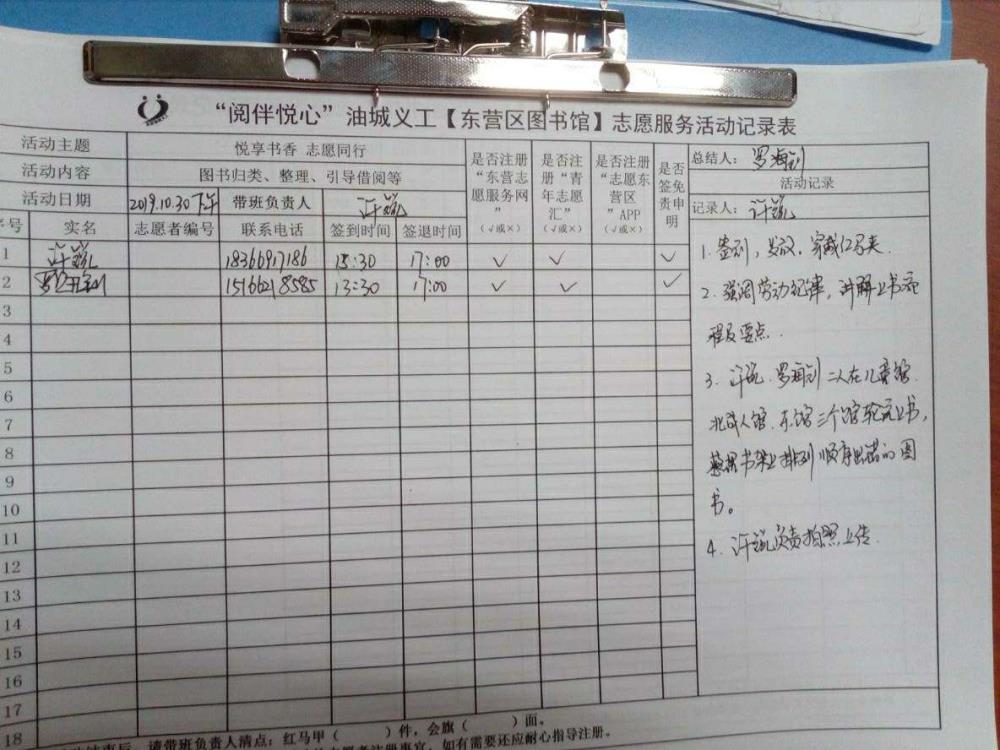 “阅伴悦心”油城义工【东营区图书馆】志愿服务活动记录表
活动主题 悦享书香 志愿同行
活动内容 图书归类、整理、引导借阅等
活动日期 2019.10.30下午 带班负责人
序号 实名 志愿者编号 联系电话 签到时间 签退时间
是否注册“东营志愿服务网”（√或×）
是否注册“青年志愿汇”（√或×）
是否注册“志愿东营区”APP（√或×）
是否签免责申明
总结人：
活动记录
记录人：
1 18366917186 15:30 17:00 √ √ √
2 15166218585 13:30 17:00 √ √ √
3
4
5
6
7
8
9
10
11
12
13
14
15
16
17
18
1. 签到，发放，穿戴红马夹.
2. 强调劳动纪律，讲解上书流
程及要点.
3. 二人在儿童馆.
北成人馆、东馆三个馆轮流上书，
书架上排列顺序出错的图
书。
4. 负责拍照上传.
请带班负责人清点：红马甲（ ）件，会旗（ ）面。
如有需要还应耐心指导注册。